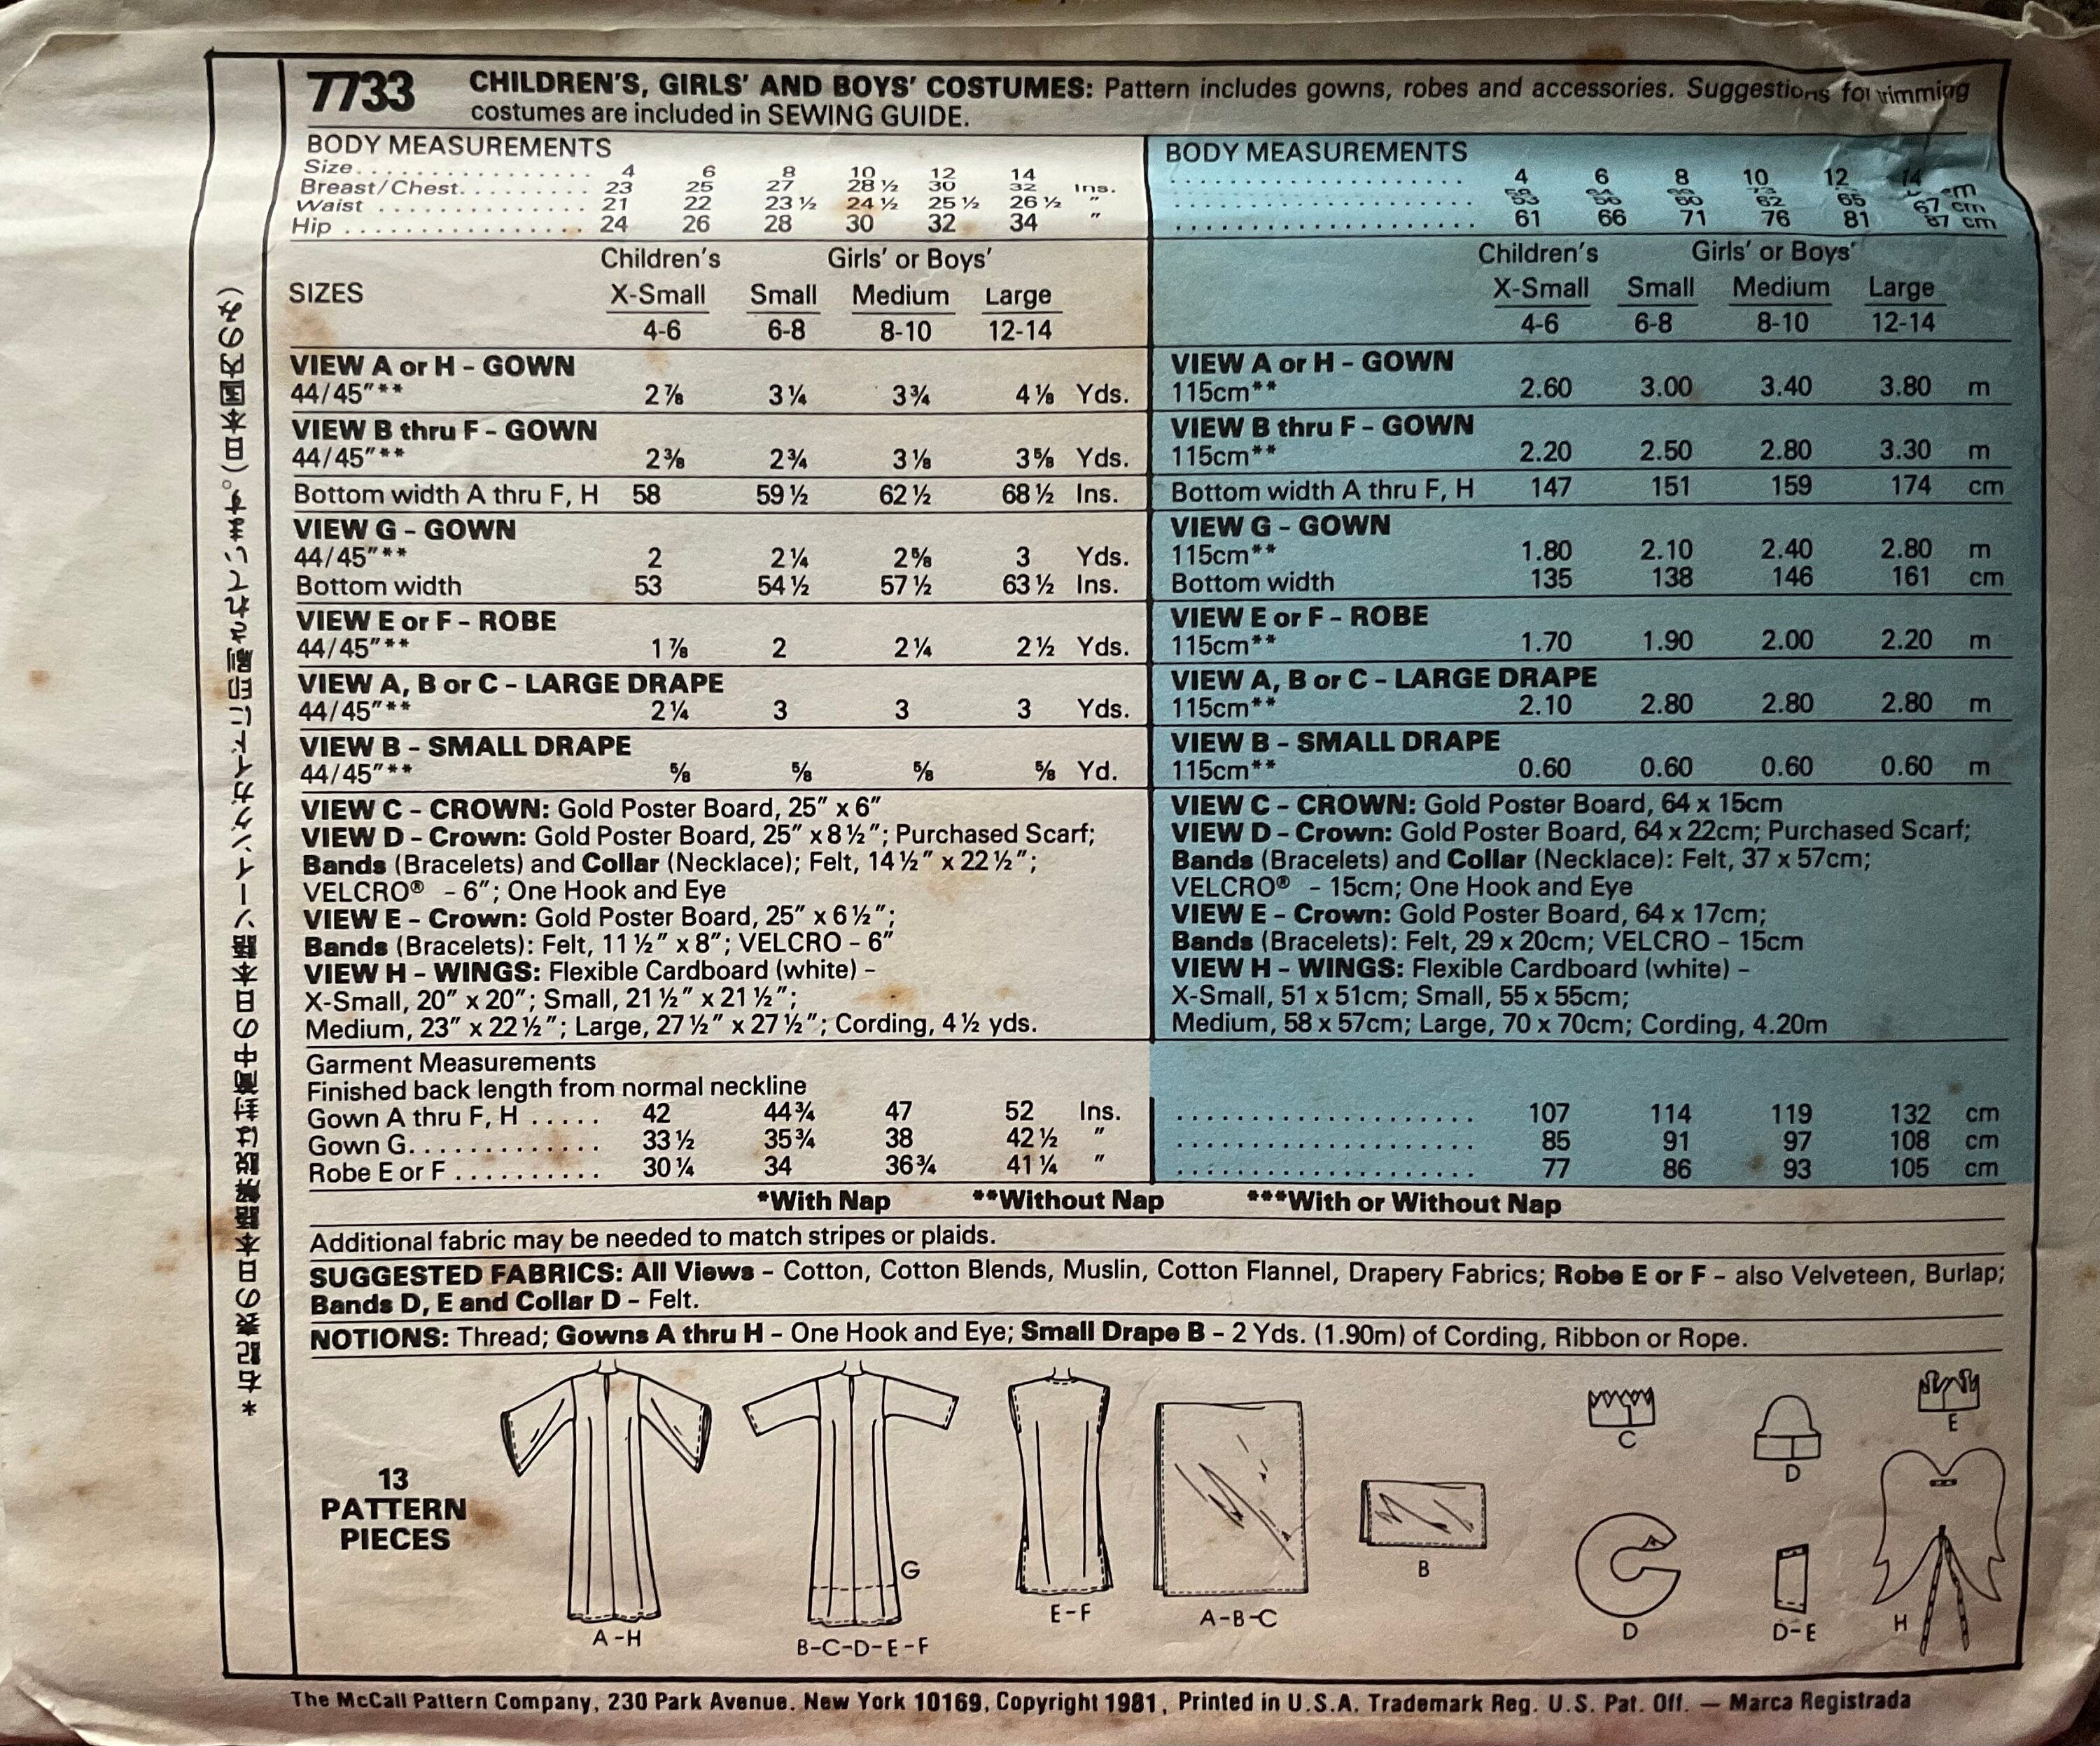 7733 CHILDREN'S, GIRLS' AND BOYS' COSTUMES: Pattern includes gowns, robes and accessories. Suggestions for trimming
costumes are included in SEWING GUIDE.
BODY MEASUREMENTS
Size . . . . . . . . . . . . . . . . . 4 6 8 10 12 14
Breast/Chest. . . . . . . . . 23 25 27 28 ½ 30 32 Ins.
Waist . . . . . . . . . . . . . . . 21 22 23 ½ 24 ½ 25 ½ 26 ½ "
Hip . . . . . . . . . . . . . . . . . 24 26 28 30 32 34 "
Children's Girls' or Boys'
SIZES X-Small Small Medium Large
4-6 6-8 8-10 12-14
VIEW A or H - GOWN
44/45"** 2 ⅞ 3 ¼ 3 ¾ 4 ⅛ Yds.
VIEW B thru F - GOWN
44/45"** 2 ⅜ 2 ¾ 3 ⅛ 3 ⅝ Yds.
Bottom width A thru F, H 58 59 ½ 62 ½ 68 ½ Ins.
VIEW G - GOWN
44/45"** 2 2 ¼ 2 ⅝ 3 Yds.
Bottom width 53 54 ½ 57 ½ 63 ½ Ins.
VIEW E or F - ROBE
44/45"** 1 ⅞ 2 2 ¼ 2 ½ Yds.
VIEW A, B or C - LARGE DRAPE
44/45"** 2 ¼ 3 3 3 Yds.
VIEW B - SMALL DRAPE
44/45"** ⅝ ⅝ ⅝ ⅝ Yd.
VIEW C - CROWN: Gold Poster Board, 25" x 6"
VIEW D - Crown: Gold Poster Board, 25" x 8 ½"; Purchased Scarf;
Bands (Bracelets) and Collar (Necklace); Felt, 14 ½" x 22 ½";
VELCRO® - 6"; One Hook and Eye
VIEW E - Crown: Gold Poster Board, 25" x 6 ½";
Bands (Bracelets): Felt, 11 ½" x 8"; VELCRO - 6"
VIEW H - WINGS: Flexible Cardboard (white) -
X-Small, 20" x 20"; Small, 21 ½" x 21 ½";
Medium, 23" x 22 ½"; Large, 27 ½" x 27 ½"; Cording, 4 ½ yds.
Garment Measurements
Finished back length from normal neckline
Gown A thru F, H . . . . . 42 44 ¾ 47 52 Ins.
Gown G. . . . . . . . . . . . . 33 ½ 35 ¾ 38 42 ½ "
Robe E or F . . . . . . . . . . 30 ¼ 34 36 ¾ 41 ¼ "
BODY MEASUREMENTS
4 6 8 10 12 14
cm
53 56 60 62 65 67 cm
61 66 71 76 81 87 cm
Children's Girls' or Boys'
X-Small Small Medium Large
4-6 6-8 8-10 12-14
VIEW A or H - GOWN
115cm** 2.60 3.00 3.40 3.80 m
VIEW B thru F - GOWN
115cm** 2.20 2.50 2.80 3.30 m
Bottom width A thru F, H 147 151 159 174 cm
VIEW G - GOWN
115cm** 1.80 2.10 2.40 2.80 m
Bottom width 135 138 146 161 cm
VIEW E or F - ROBE
115cm** 1.70 1.90 2.00 2.20 m
VIEW A, B or C - LARGE DRAPE
115cm** 2.10 2.80 2.80 2.80 m
VIEW B - SMALL DRAPE
115cm** 0.60 0.60 0.60 0.60 m
VIEW C - CROWN: Gold Poster Board, 64 x 15cm
VIEW D - Crown: Gold Poster Board, 64 x 22cm; Purchased Scarf;
Bands (Bracelets) and Collar (Necklace): Felt, 37 x 57cm;
VELCRO® - 15cm; One Hook and Eye
VIEW E - Crown: Gold Poster Board, 64 x 17cm;
Bands (Bracelets): Felt, 29 x 20cm; VELCRO - 15cm
VIEW H - WINGS: Flexible Cardboard (white) -
X-Small, 51 x 51cm; Small, 55 x 55cm;
Medium, 58 x 57cm; Large, 70 x 70cm; Cording, 4.20m
107 114 119 132 cm
85 91 97 108 cm
77 86 93 105 cm
*With Nap **Without Nap ***With or Without Nap
Additional fabric may be needed to match stripes or plaids.
SUGGESTED FABRICS: All Views - Cotton, Cotton Blends, Muslin, Cotton Flannel, Drapery Fabrics; Robe E or F - also Velveteen, Burlap;
Bands D, E and Collar D - Felt.
NOTIONS: Thread; Gowns A thru H - One Hook and Eye; Small Drape B - 2 Yds. (1.90m) of Cording, Ribbon or Rope.
13
PATTERN
PIECES
A-H
G
B-C-D-E-F
E-F
A-B-C
B
C
D
E
D
D-E
H
The McCall Pattern Company, 230 Park Avenue, New York 10169, Copyright 1981, Printed in U.S.A. Trademark Reg. U.S. Pat. Off. — Marca Registrada
*右記表の日本語解説は封筒中の日本語ソーイングガイド下に印刷されています。(日本国内のみ)